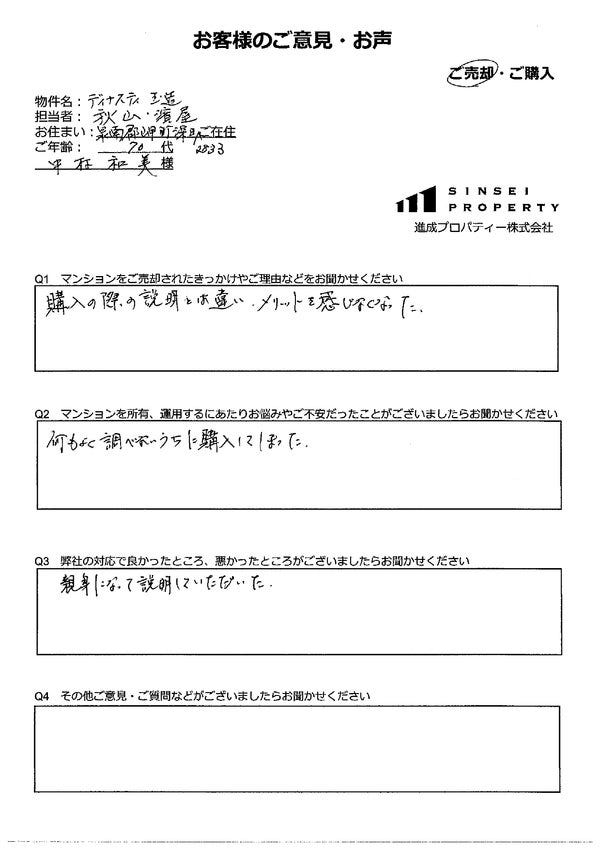 お客様のご意見・お声
ご売却・ご購入
物件名：ディナスティ玉造
担当者：秋山・濵屋
お住まい：泉南郡岬町深日ご在住
ご年齢： 70 代 2833
中村 和美 様
SINSEI
PROPERTY
進成プロパティー株式会社
Q1 マンションをご売却されたきっかけやご理由などをお聞かせください
購入の際の説明とは違い、メリットを感じなくなった。
Q2 マンションを所有、運用するにあたりお悩みやご不安だったことがございましたらお聞かせください
何もよく調べないうちに購入してしまった。
Q3 弊社の対応で良かったところ、悪かったところがございましたらお聞かせください
親身になって説明していただいた。
Q4 その他ご意見・ご質問などがございましたらお聞かせください